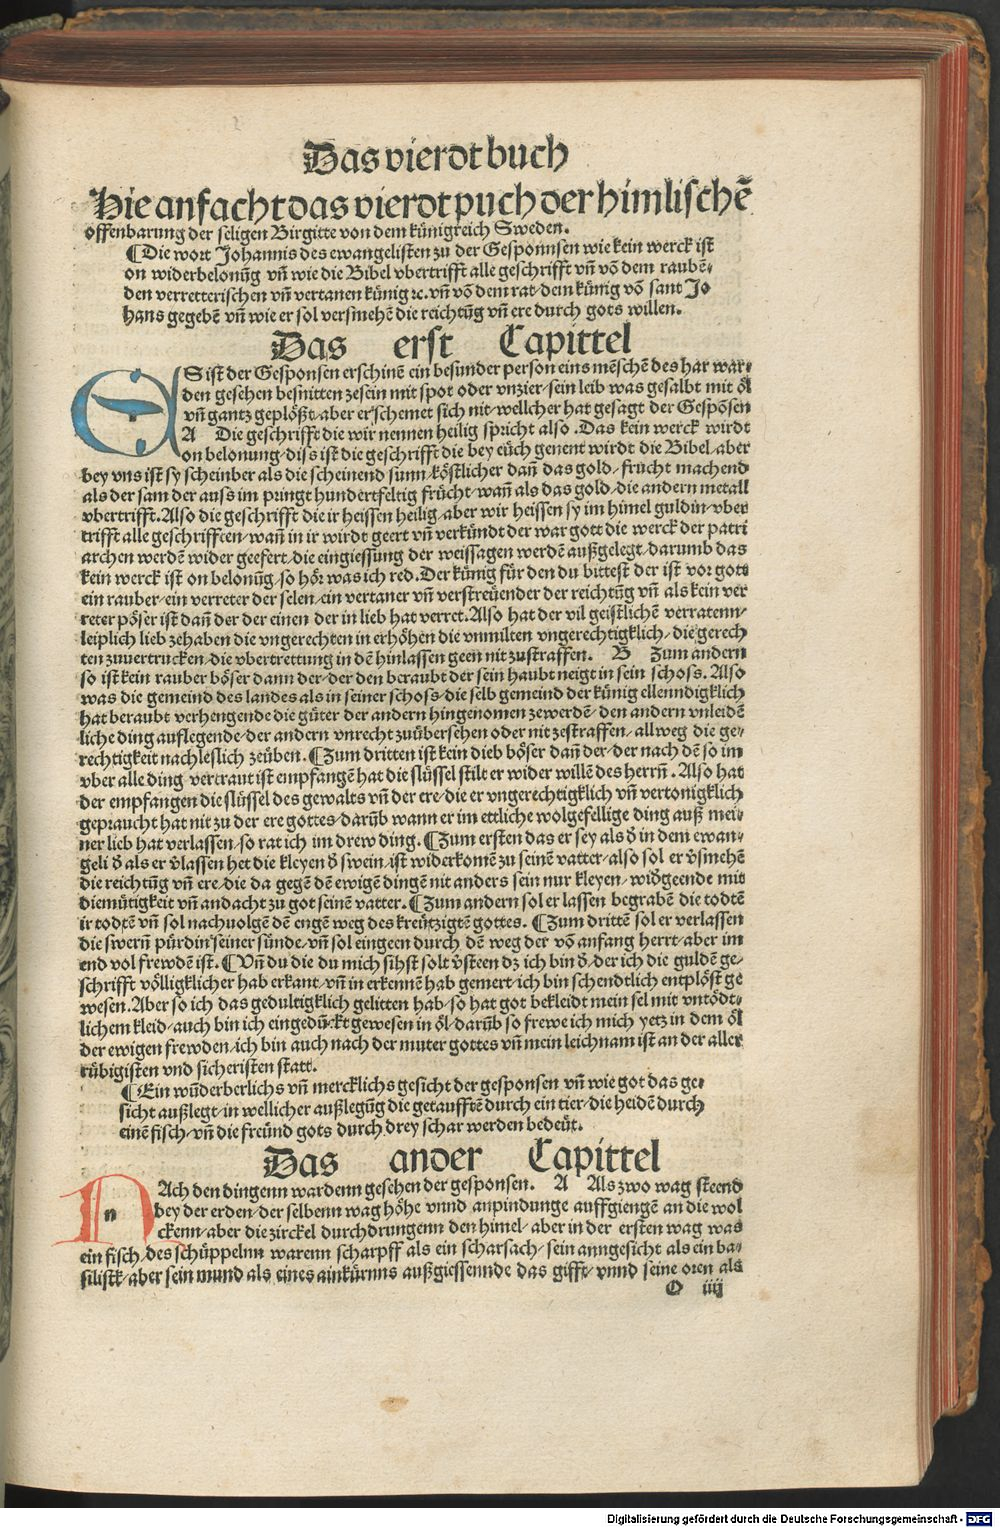 Das vierdt buch
Hie anfacht das vierdt puch der himlischē
offenbarung der seligen Birgitte von dem künigreich Sweden.
¶ Die wort Johannis des ewangelisten zu der Gesponnsen wie kein werck ist
on widerbelonūg vn̄ wie die Bibel vbertrifft alle geschrifft vn̄ vō dem raubē-
den verretterischen vn̄ vertanen künig ⁊c. vn̄ vō dem rat dem künig vō sant Jo
hans gegebē vn̄ wie er sol versmehē die reichtūg vn̄ ere durch gots willen.
Das erst Capittel
ES ist der Gesponsen erschinē ein besunder person eins mēschē des har war-
den gesehen besnitten zesein mit spot oder vnzier/sein leib was gesalbt mit öl
vn̄ gantz geplößt/aber er schemet sich nit/wellcher hat gesagt der Gespōsen
A Die geschrifft die wir nennen heilig spricht also. Das kein werck wirdt
on belonung/diss ist die geschrifft die bey eüch genent wirdt die Bibel/aber
bey vns ist sy scheinber als die scheinend sunn/köstlicher dan̄ das gold/frücht machend
als der sam der auss im pringt hundertfeltig frücht/wan̄ als das gold/die andern metall
vbertrifft. Also die geschrifft die ir heissen heilig/aber wir heissen sy im himel guldin/vber
trifft alle geschrifften/wan̄ in ir wirdt geert vn̄ verkündt der war gott die werck der patri
archen werdē wider geefert/die eingiessung der weissagen werdē außgelegt/darumb das
kein werck ist on belonūg/so hör was ich red. Der künig für den du bittest der ist vor gots
ein rauber/ein verreter der selen/ein vertaner vn̄ verstreüender der reichtūg vn̄ als kein ver
reter pöser ist dan̄ der der einen der in lieb hat verret. Also hat der vil geistlichē verratenn/
leiplich lieb zehaben die vngerechten in erhöhen die vnmilten vngerechtigklich/die gerech
ten zuuertrucken/die vbertrettung in dē hinlassen geen nit zustraffen. B Zum andern
so ist kein rauber böser dann der/der den beraubt der sein haubt neigt in sein schoss. Also
was die gemeind des landes als in seiner schoss/die selb gemeind der künig ellenndigklich
hat beraubt verhengende die güter der andern hingenomen zewerdē/den andern vnleidē
liche ding auflegende/der andern vnrecht zuübersehen oder nit zestraffen/allweg die ge-
rechtigkeit nachleslich zeüben. ¶ Zum dritten ist kein dieb böser dan̄ der/der nach dē so im
vber alle ding vertraut ist empfangē hat die slüssel stilt er wider willē des herrn̄. Also hat
der empfangen die slüssel des gewalts vn̄ der ere/die er vngerechtigklich vn̄ vertonigklich
gepraucht hat nit zu der ere gottes/darūb wann er im ettliche wolgefellige ding auß mei-
ner lieb hat verlassen/so rat ich im drew ding. ¶ Zum ersten das er sey als ð in dem ewan-
geli ð als er v̄lassen het die kleyen ð swein/ist widerkomē zu seinē vatter/also sol er v̄smehē
die reichtūg vn̄ ere/die da gegē dē ewigē dingē nit anders sein nur kleyen/widgeende mit
diemütigkeit vn̄ andacht zu got seinē vatter. ¶ Zum andern sol er lassen begrabē die todtē
ir todtē vn̄ sol nachuolgē dē engē weg des kreützigtē gottes. ¶ Zum drittē sol er verlassen
die swern̄ pürdin seiner sünde/vn̄ sol eingeen durch dē weg der vō anfang herrt/aber im
end vol frewdē ist. ¶ Vn̄ du die du mich sihst solt v̄steen dz ich bin ð/der ich die guldē ge-
schrifft völligklicher hab erkant/vn̄ in erkennē hab gemert/ich bin schendtlich entplöst ge
wesen. Aber so ich das gedultigklich gelitten hab/so hat got bekleidt mein sel mit vntödt-
lichem kleid/auch bin ich eingedūckt gewesen in öl/darūb so frewe ich mich yetz in dem öl
der ewigen frewden/ich bin auch nach der muter gottes vn̄ mein leichnam ist an der aller
rübigisten vnd sicheristen statt.
¶ Ein wūderberlichs vn̄ mercklichs gesicht der gesponsen vn̄ wie got das ge-
sicht außlegt/in wellicher außlegūg die getaufftē durch ein tier/die heidē durch
einē fisch/vn̄ die freünd gots durch drey schar werden bedeüt.
Das ander Capittel
NAch den dingenn wardenn gesehen der gesponsen. A Als zwo wag steend
bey der erden/der selbenn wag höhe vnnd anpindunge auffgiengē an die wol
ckenn/aber die zirckel durchdrungenn den himel/aber in der ersten wag was
ein fisch/des schüppelnn warenn scharpff als ein scharsach/sein anngesicht als ein ba-
silistk/aber sein mund als eines ainkürnns außgiessennde das gifft/vnnd seine oren als
O iiij
Digitalisierung gefördert durch die Deutsche Forschungsgemeinschaft - DFG